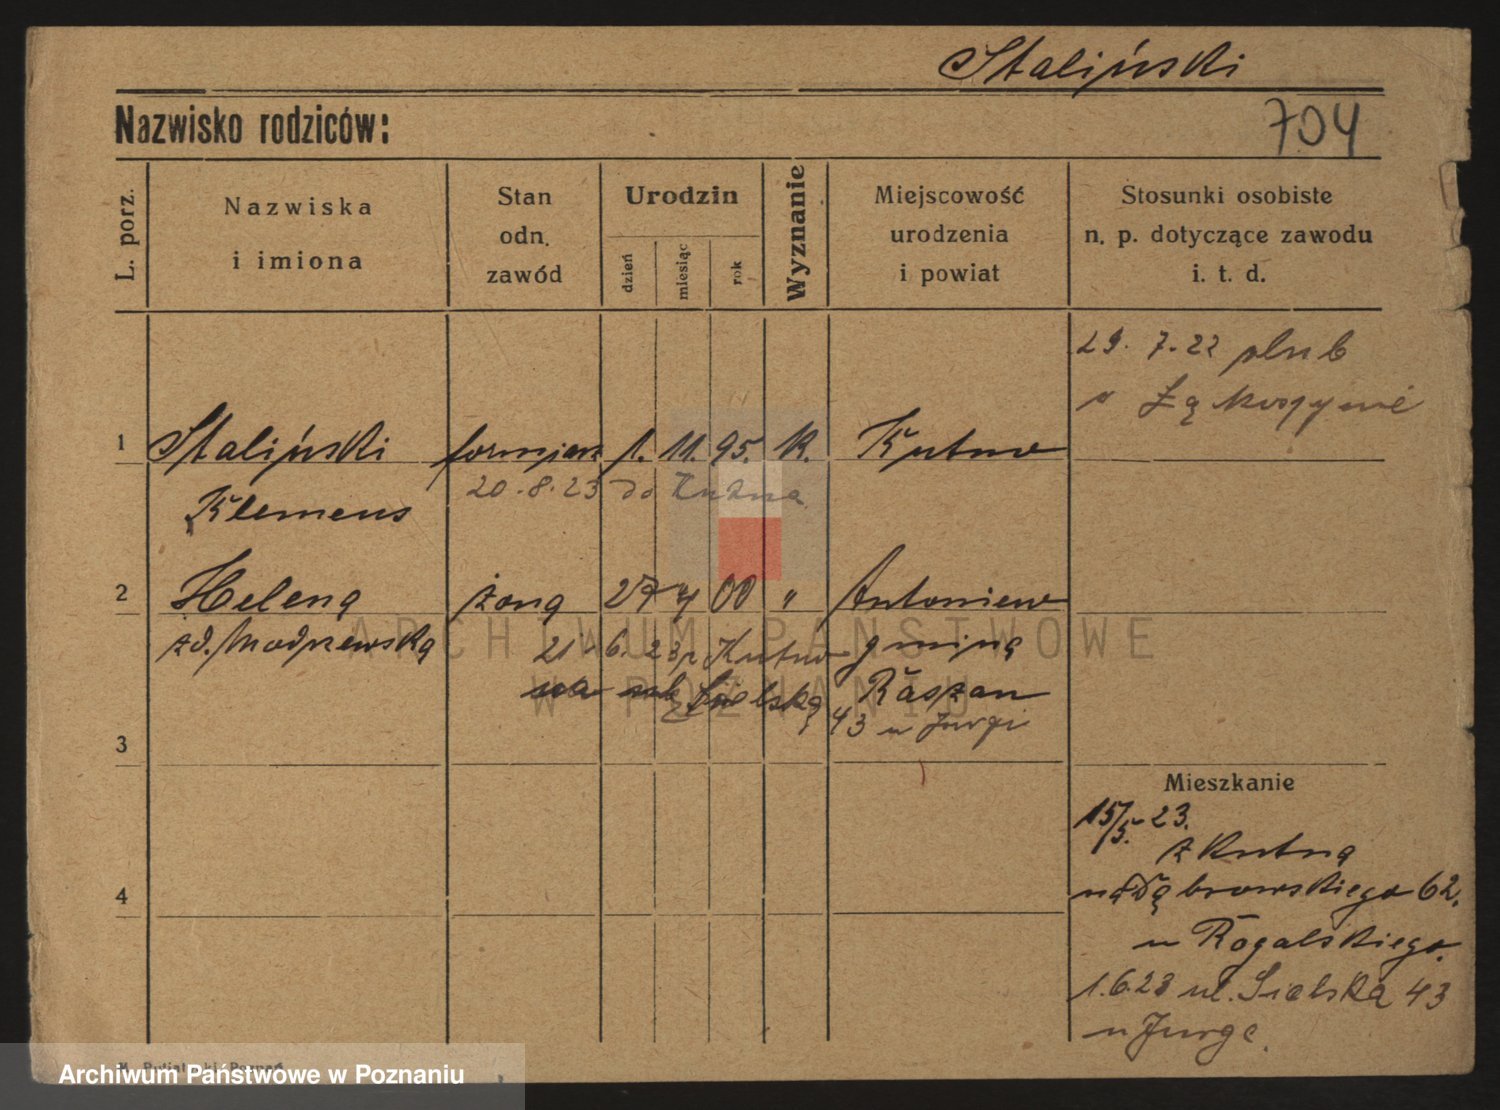 Staliński
Nazwisko rodziców:
704
L. porz.
Nazwiska
i imiona
Stan
odn.
zawód
Urodzin
dzień
miesiąc
rok
Wyznanie
Miejscowość
urodzenia
i powiat
Stosunki osobiste
n. p. dotyczące zawodu
i. t. d.
29. 7. 22 ślub
w
1 Staliński 1. 11. 95. k. Kutno
20.8.23 do Kutna
Klemens
2 Helena żona 27 4 00 " Antoniew
zd. Modrzewska gmina
21. 6. 23 z Kutno
Sielska
43 u Jurgi
3
Mieszkanie
15/5. 23.
z Kutna
na Dąbrowskiego 62.
u Rogalskiego.
1.6.23 ul. Sielska 43
u Jurge.
4
ARCHIWUM PAŃSTWOWE
W POZNANIU
Archiwum Państwowe w Poznaniu